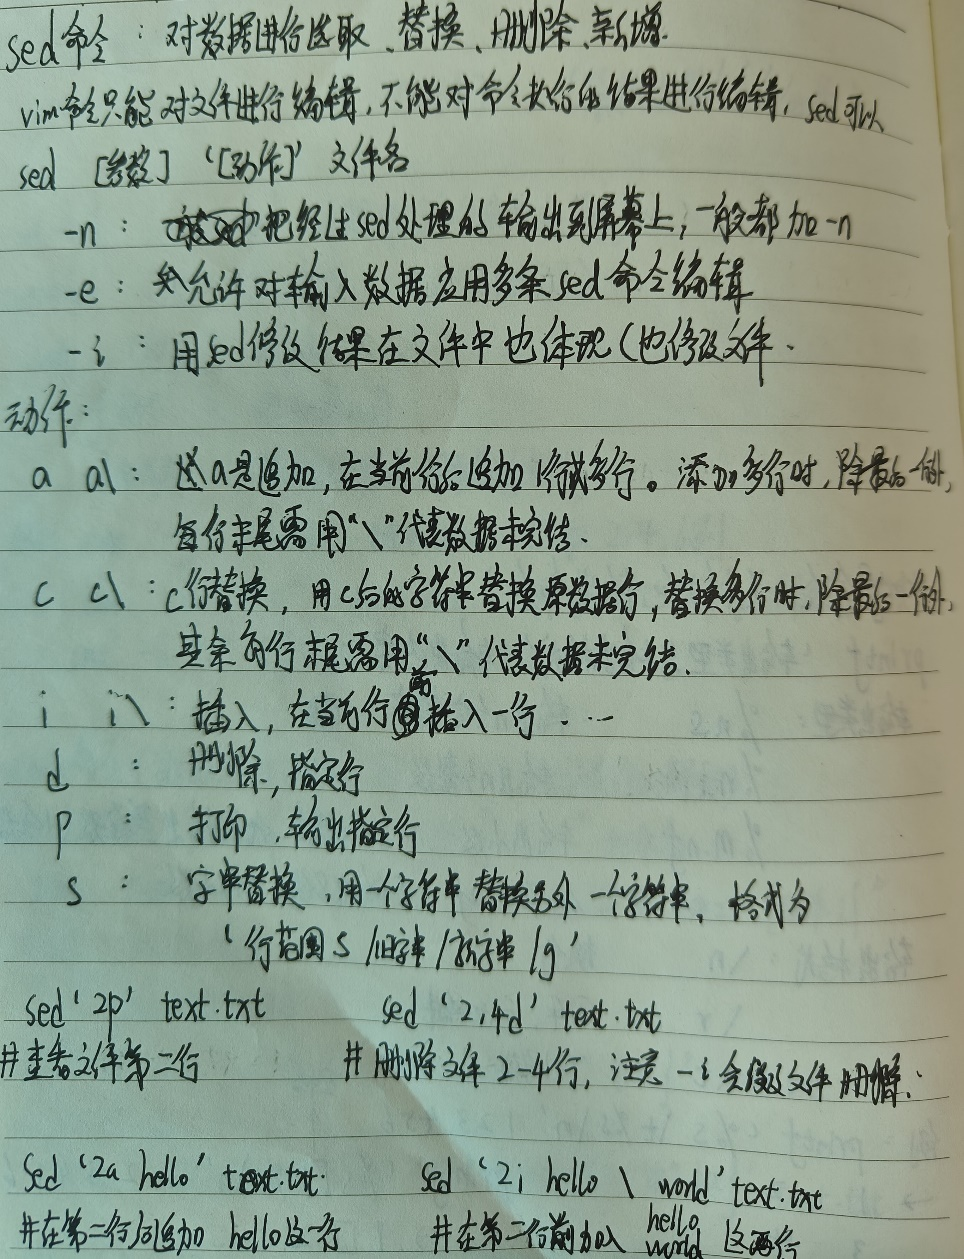 sed命令：对数据进行选取、替换、删除、新增.
vim命令只能对文件进行编辑，不能对命令执行的结果进行编辑，sed可以
sed [参数] '[动作]' 文件名
-n： 把经过sed处理的输出到屏幕上，一般都加-n
-e： 允许对输入数据应用多条sed命令编辑
-i： 用sed修改结果在文件中也体现（也修改文件.
动作：
a a\： a是追加，在当前行后追加1行或多行。添加多行时，除最后一行外，
每行末尾需用"\"代表数据未完结.
c c\：c行替换，用c后的字符串替换原数据行，替换多行时，除最后一行外，
其余每行末尾需用"\"代表数据未完结.
i i\：插入，在当前行前插入一行. ...
d ： 删除，指定行
p ： 打印，输出指定行
s ： 字串替换，用一个字符串替换另外一个字符串，格式为
'行范围s/旧字串/新字串/g'
sed '2p' text.txt sed '2,4d' text.txt
#查看文件第二行 #删除文件2-4行，注意-i会修改文件
sed '2a hello' text.txt. sed '2i hello \ world' text.txt
#在第二行后追加 hello这一行 #在第二行前加入 hello world 这两行